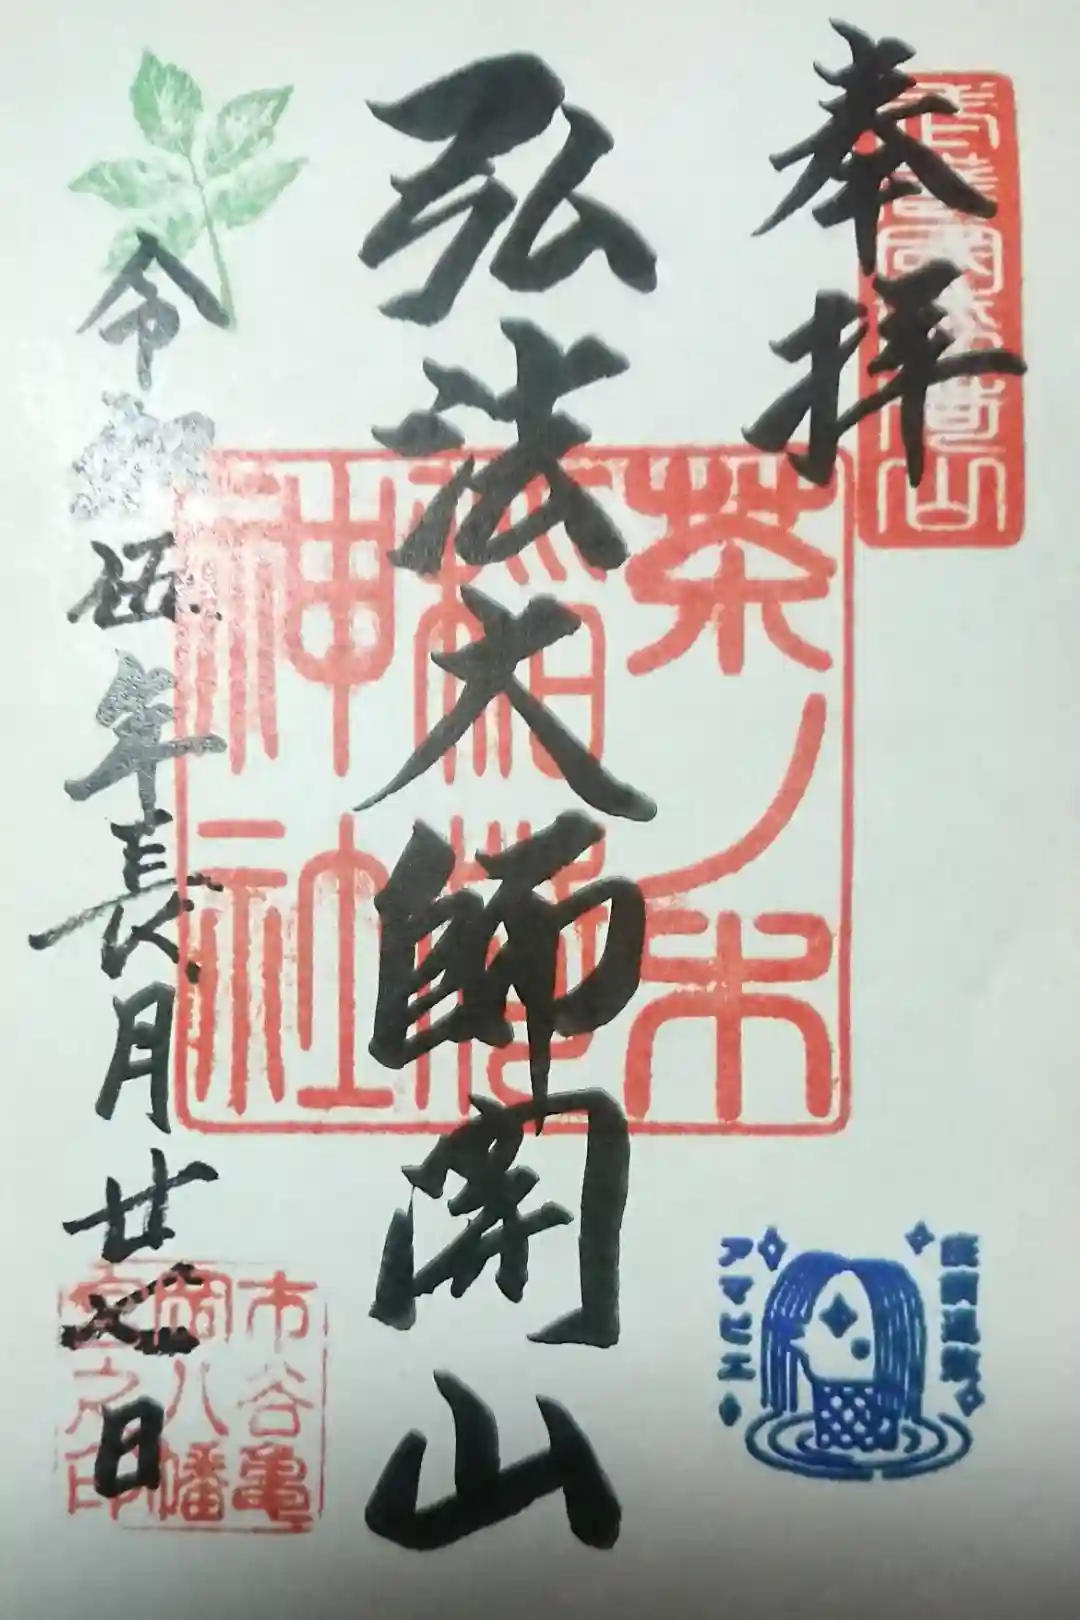 奉拝
弘法大師開山
茶ノ木
稲荷
神社
令和伍年長月廿七日
市谷亀
岡八幡
宮之印
アマビエ